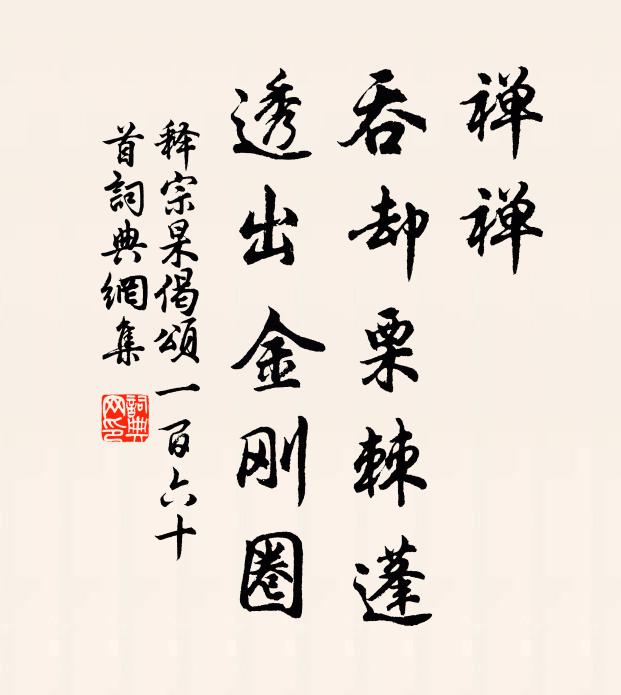 禅禅
吞却栗棘蓬
透出金刚圈
释宗杲偈颂一百六十
首詞典網集
詞典
网印